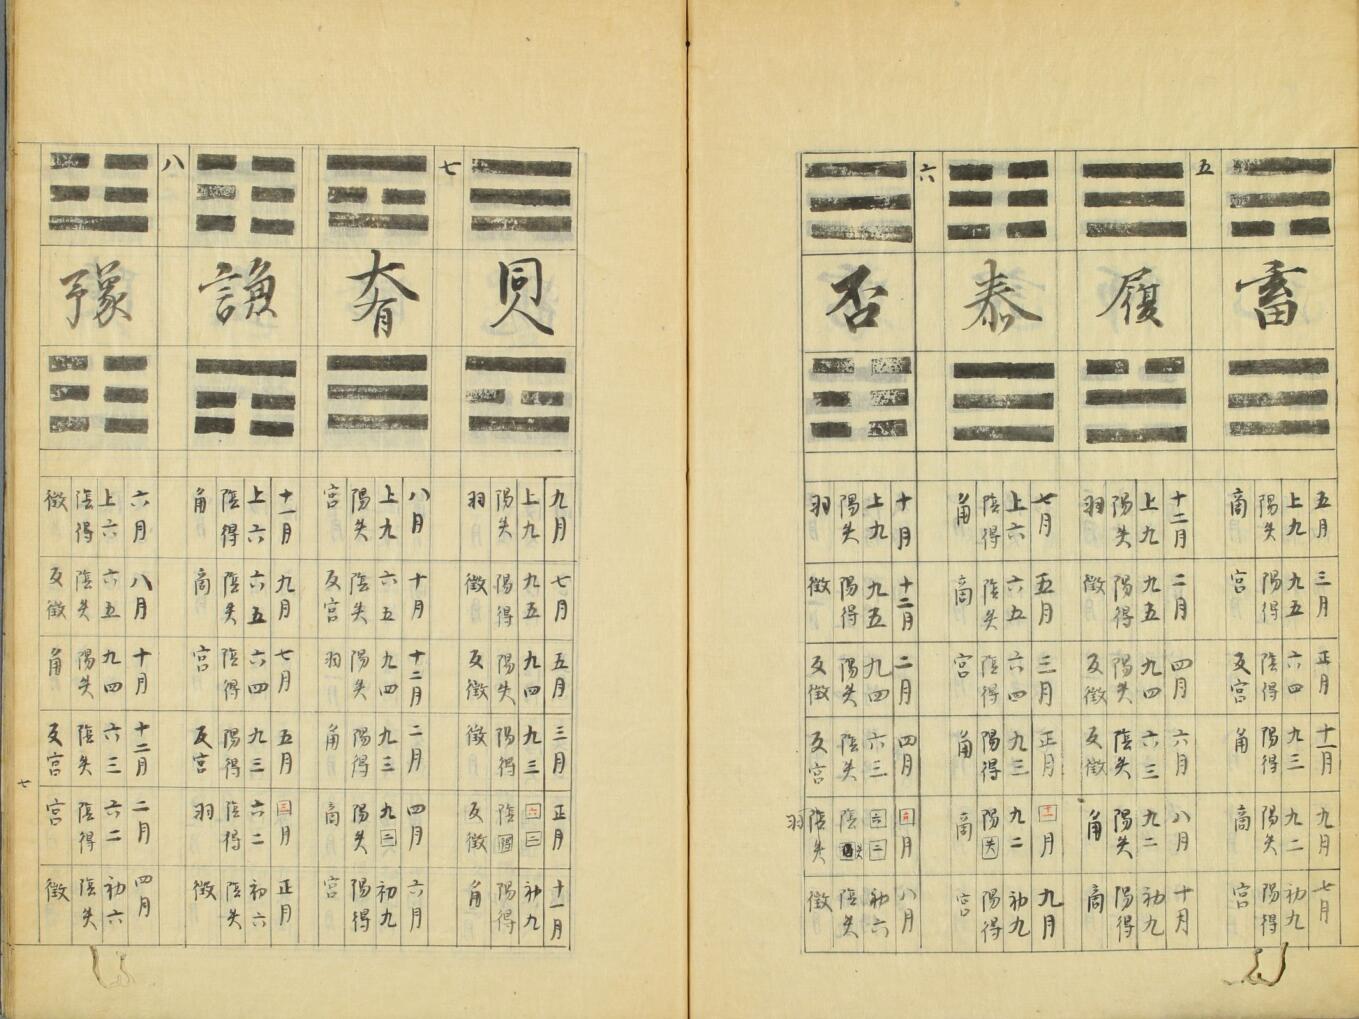 畜
五月 上九 陽失 商
三月 九五 陽得 宮
正月 六四 陰得 反宮
十一月 九三 陽得 角
九月 九二 陽失 商
七月 初九 陽得 宮
五
履
十二月 上九 陽失 羽
二月 九五 陽得 徵
四月 九四 陽失 反徵
六月 六三 陰失 反徵
八月 九二 陽失 角
十月 初九 陽得 商
泰
七月 上六 陰得 角
五月 六五 陰失 商
三月 六四 陰得 宮
正月 九三 陽得 角
十一月 九二 陽失 商
九月 初九 陽得 宮
六
否
十月 上九 陽失 羽
十二月 九五 陽得 徵
二月 九四 陽失 反徵
四月 六三 陰失 反宮
六月 六二 陰 陰失 羽
八月 初六 陰失 徵
同人
九月 上九 陽失 羽
七月 九五 陽得 徵
五月 九四 陽失 反徵
三月 九三 陽得 徵
正月 六二 陰得 反徵
十一月 初九 陽得 角
七
大有
八月 上九 陽失 宮
十月 六五 陰失 反宮
十二月 九四 陽失 羽
二月 九三 陽得 角
四月 九二 陽失 商
六月 初九 陽得 宮
謙
十一月 上六 陰得 角
九月 六五 陰失 商
七月 六四 陰得 宮
五月 九三 陽得 反宮
三月 六二 陰得 羽
正月 初六 陰失 徵
八
豫
六月 上六 陰得 徵
八月 六五 陰失 反徵
十月 九四 陽失 角
十二月 六三 陰失 反宮
二月 六二 陰得 宮
四月 初六 陰失 徵
七